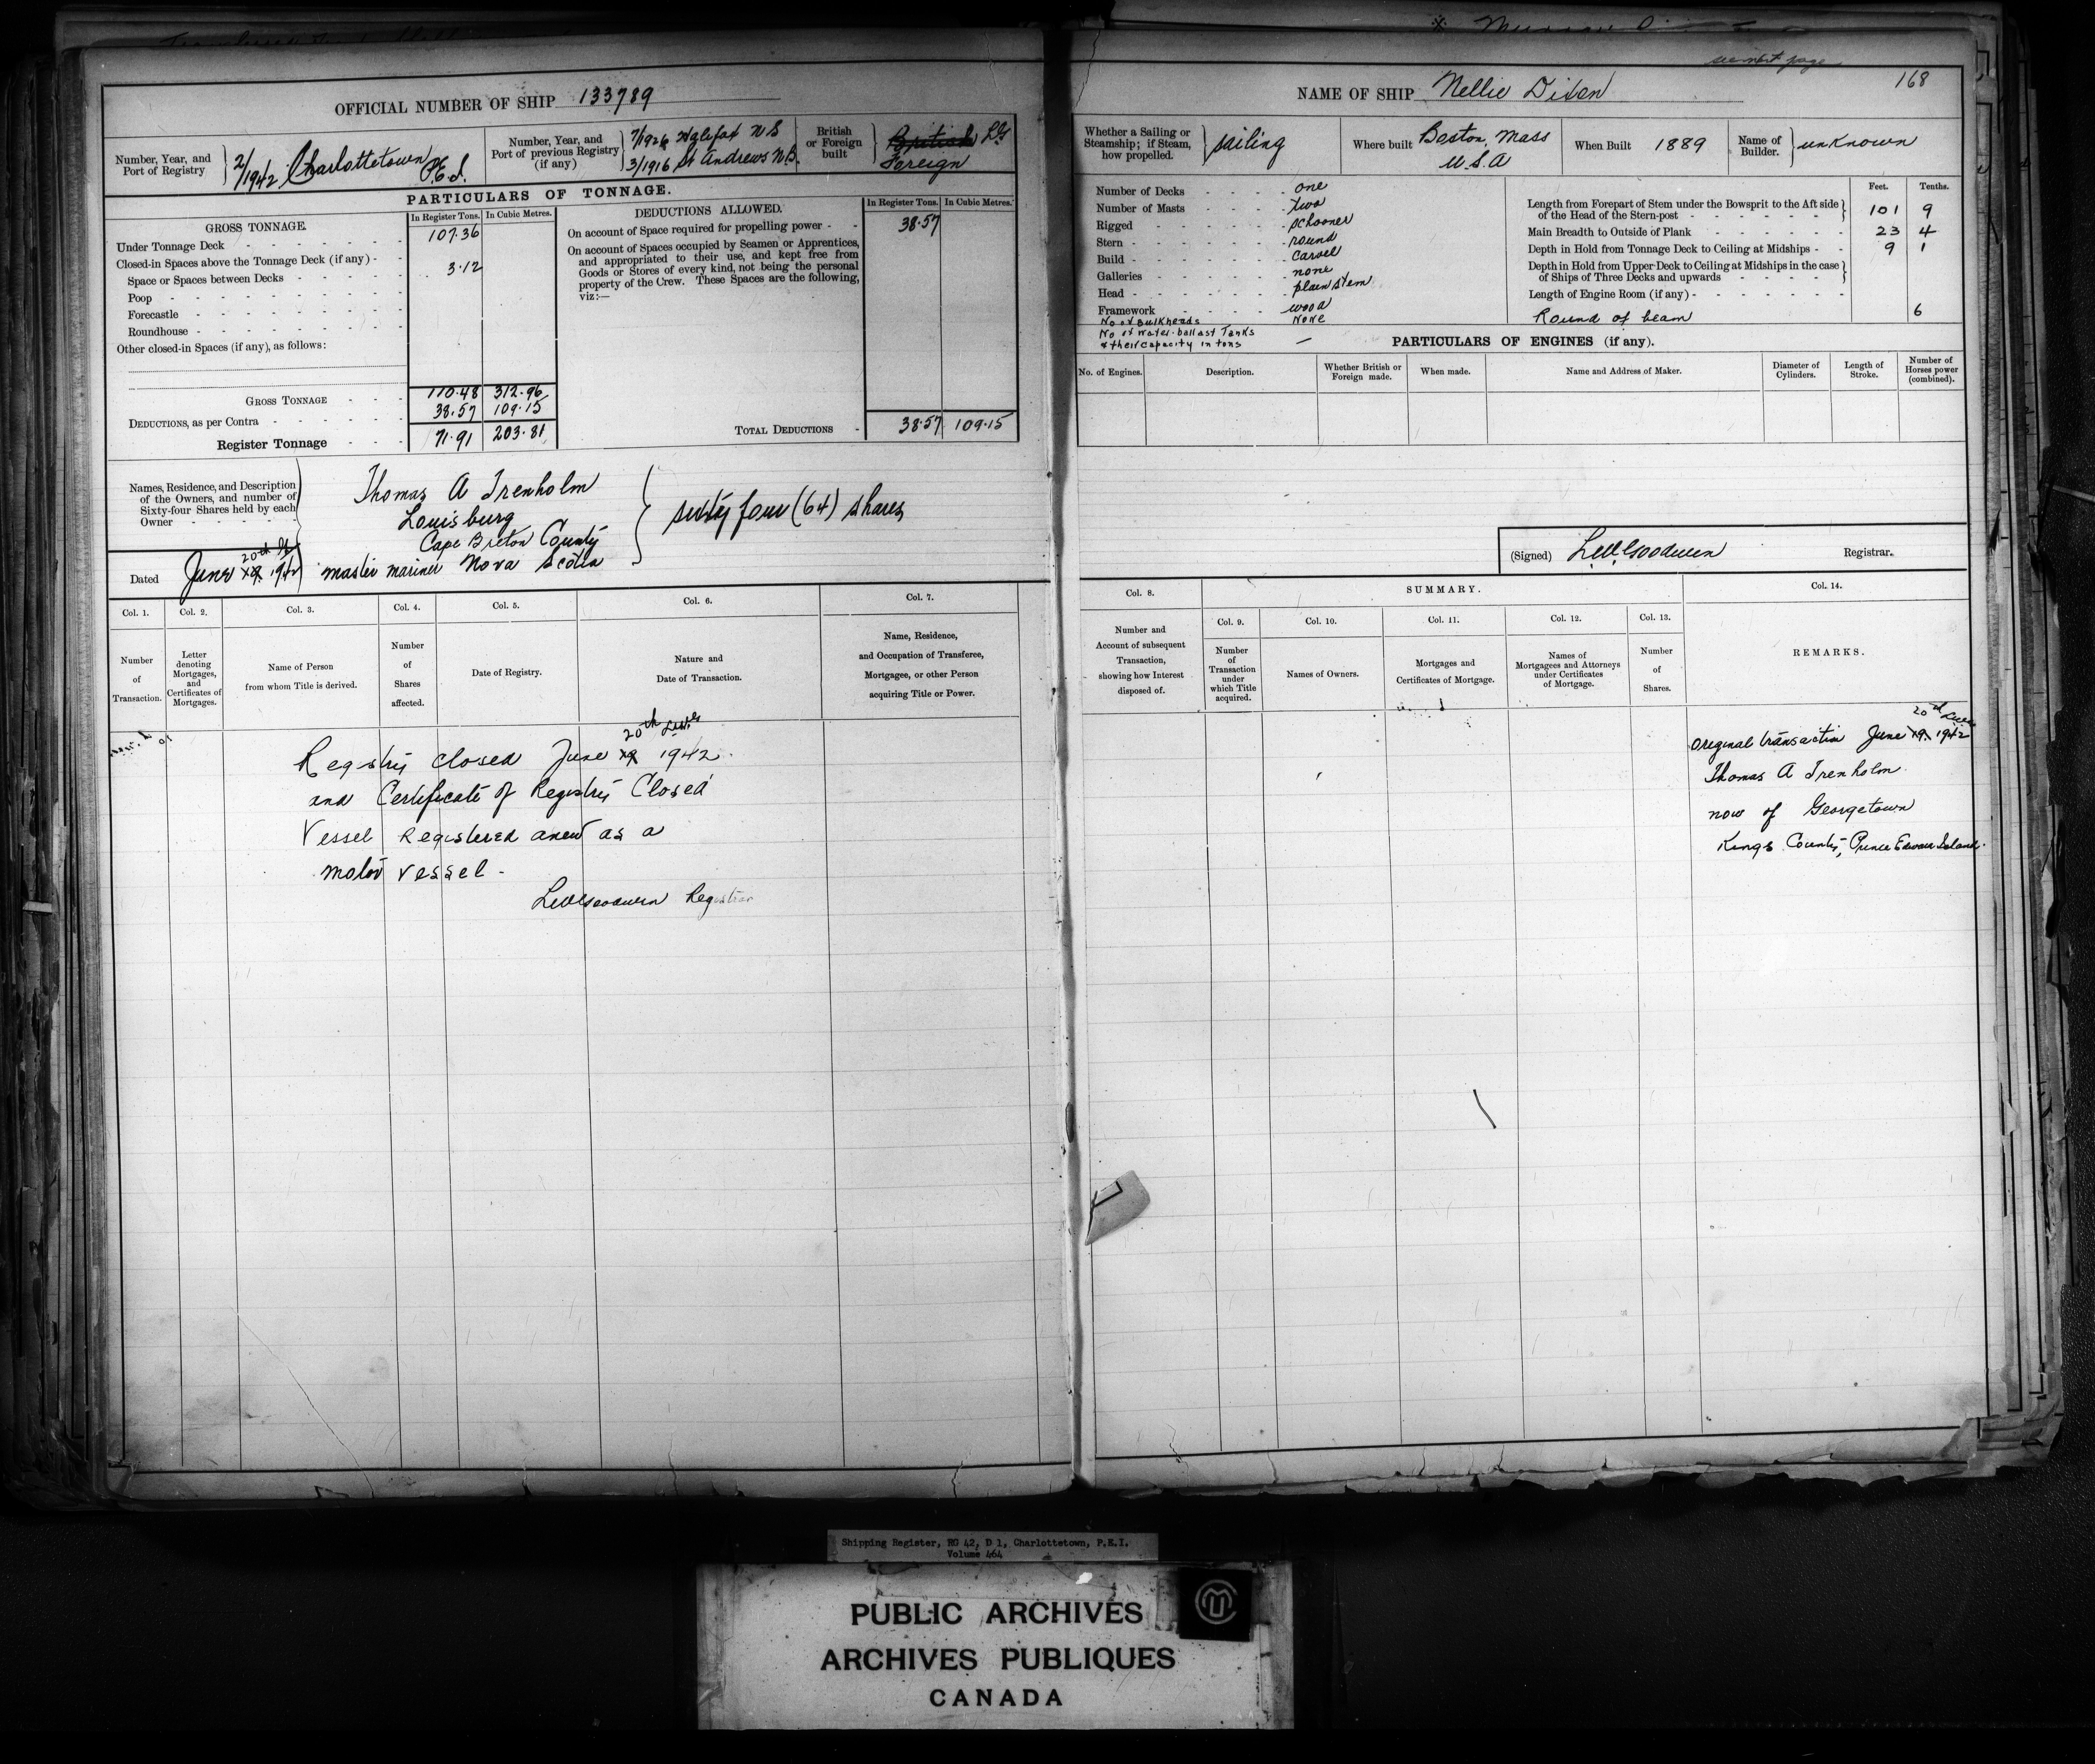 see next page
168
OFFICIAL NUMBER OF SHIP 133789
NAME OF SHIP Nellie Dixon
Number, Year, and Port of Registry 2/1942 Charlottetown P.E.I.
Number, Year, and Port of previous Registry (if any) 7/1926 Halifax N S
3/1916 St Andrews N.B.
British or Foreign built British
Foreign
PARTICULARS OF TONNAGE.
GROSS TONNAGE.
In Register Tons. In Cubic Metres.
Under Tonnage Deck - 107.36
Closed-in Spaces above the Tonnage Deck (if any) -
Space or Spaces between Decks - 3.12
Poop -
Forecastle -
Roundhouse -
Other closed-in Spaces (if any), as follows:
GROSS TONNAGE - 110.48 312.96
DEDUCTIONS, as per Contra - 38.57 109.15
Register Tonnage - 71.91 203.81
DEDUCTIONS ALLOWED.
In Register Tons. In Cubic Metres.
On account of Space required for propelling power - 38.57
On account of Spaces occupied by Seamen or Apprentices,
and appropriated to their use, and kept free from
Goods or Stores of every kind, not being the personal
property of the Crew. These Spaces are the following,
viz:—
TOTAL DEDUCTIONS - 38.57 109.15
Names, Residence, and Description
of the Owners, and number of
Sixty-four Shares held by each
Owner
Thomas A Trenholm
Louisburg
Cape Breton County
master mariner Nova Scotia
sixty four (64) shares
Dated June 19 20th 1942
Whether a Sailing or
Steamship; if Steam,
how propelled.
sailing
Where built Boston, Mass
U.S.A
When Built 1889
Name of Builder. unknown
Number of Decks - one
Number of Masts - two
Rigged - schooner
Stern - round
Build - carvel
Galleries - none
Head - plain stem
Framework - wood
No of Bulkheads None
No of water-ballast Tanks
& their capacity in tons —
Feet. Tenths.
Length from Forepart of Stem under the Bowsprit to the Aft side
of the Head of the Stern-post - 101 9
Main Breadth to Outside of Plank - 23 4
Depth in Hold from Tonnage Deck to Ceiling at Midships - 9 1
Depth in Hold from Upper Deck to Ceiling at Midships in the case
of Ships of Three Decks and upwards -
Length of Engine Room (if any) -
Round of beam 6
PARTICULARS OF ENGINES (if any).
No. of Engines. Description. Whether British or Foreign made. When made. Name and Address of Maker. Diameter of Cylinders. Length of Stroke. Number of Horses power (combined).
(Signed) L.W. Goodwin Registrar.
Col. 1. Col. 2. Col. 3. Col. 4. Col. 5. Col. 6. Col. 7.
Number of Transaction.
Letter denoting Mortgages, and Certificates of Mortgages.
Name of Person from whom Title is derived.
Number of Shares affected.
Date of Registry.
Nature and Date of Transaction.
Name, Residence, and Occupation of Transferee, Mortgagee, or other Person acquiring Title or Power.
Registry closed June 19 20th 1942.
and Certificate of Registry Closed
Vessel Registered anew as a
motor vessel -
L W Goodwin Registrar
Col. 8. SUMMARY. Col. 14.
Col. 9. Col. 10. Col. 11. Col. 12. Col. 13.
Number and Account of subsequent Transaction, showing how Interest disposed of.
Number of Transaction under which Title acquired.
Names of Owners.
Mortgages and Certificates of Mortgage.
Names of Mortgagees and Attorneys under Certificates of Mortgage.
Number of Shares.
REMARKS.
original transaction June 19. 20th 1942
Thomas A Trenholm
now of Georgetown
Kings County, Prince Edward Island.
Shipping Register, RG 42, D 1, Charlottetown, P.E.I.
Volume 464
PUBLIC ARCHIVES
ARCHIVES PUBLIQUES
CANADA